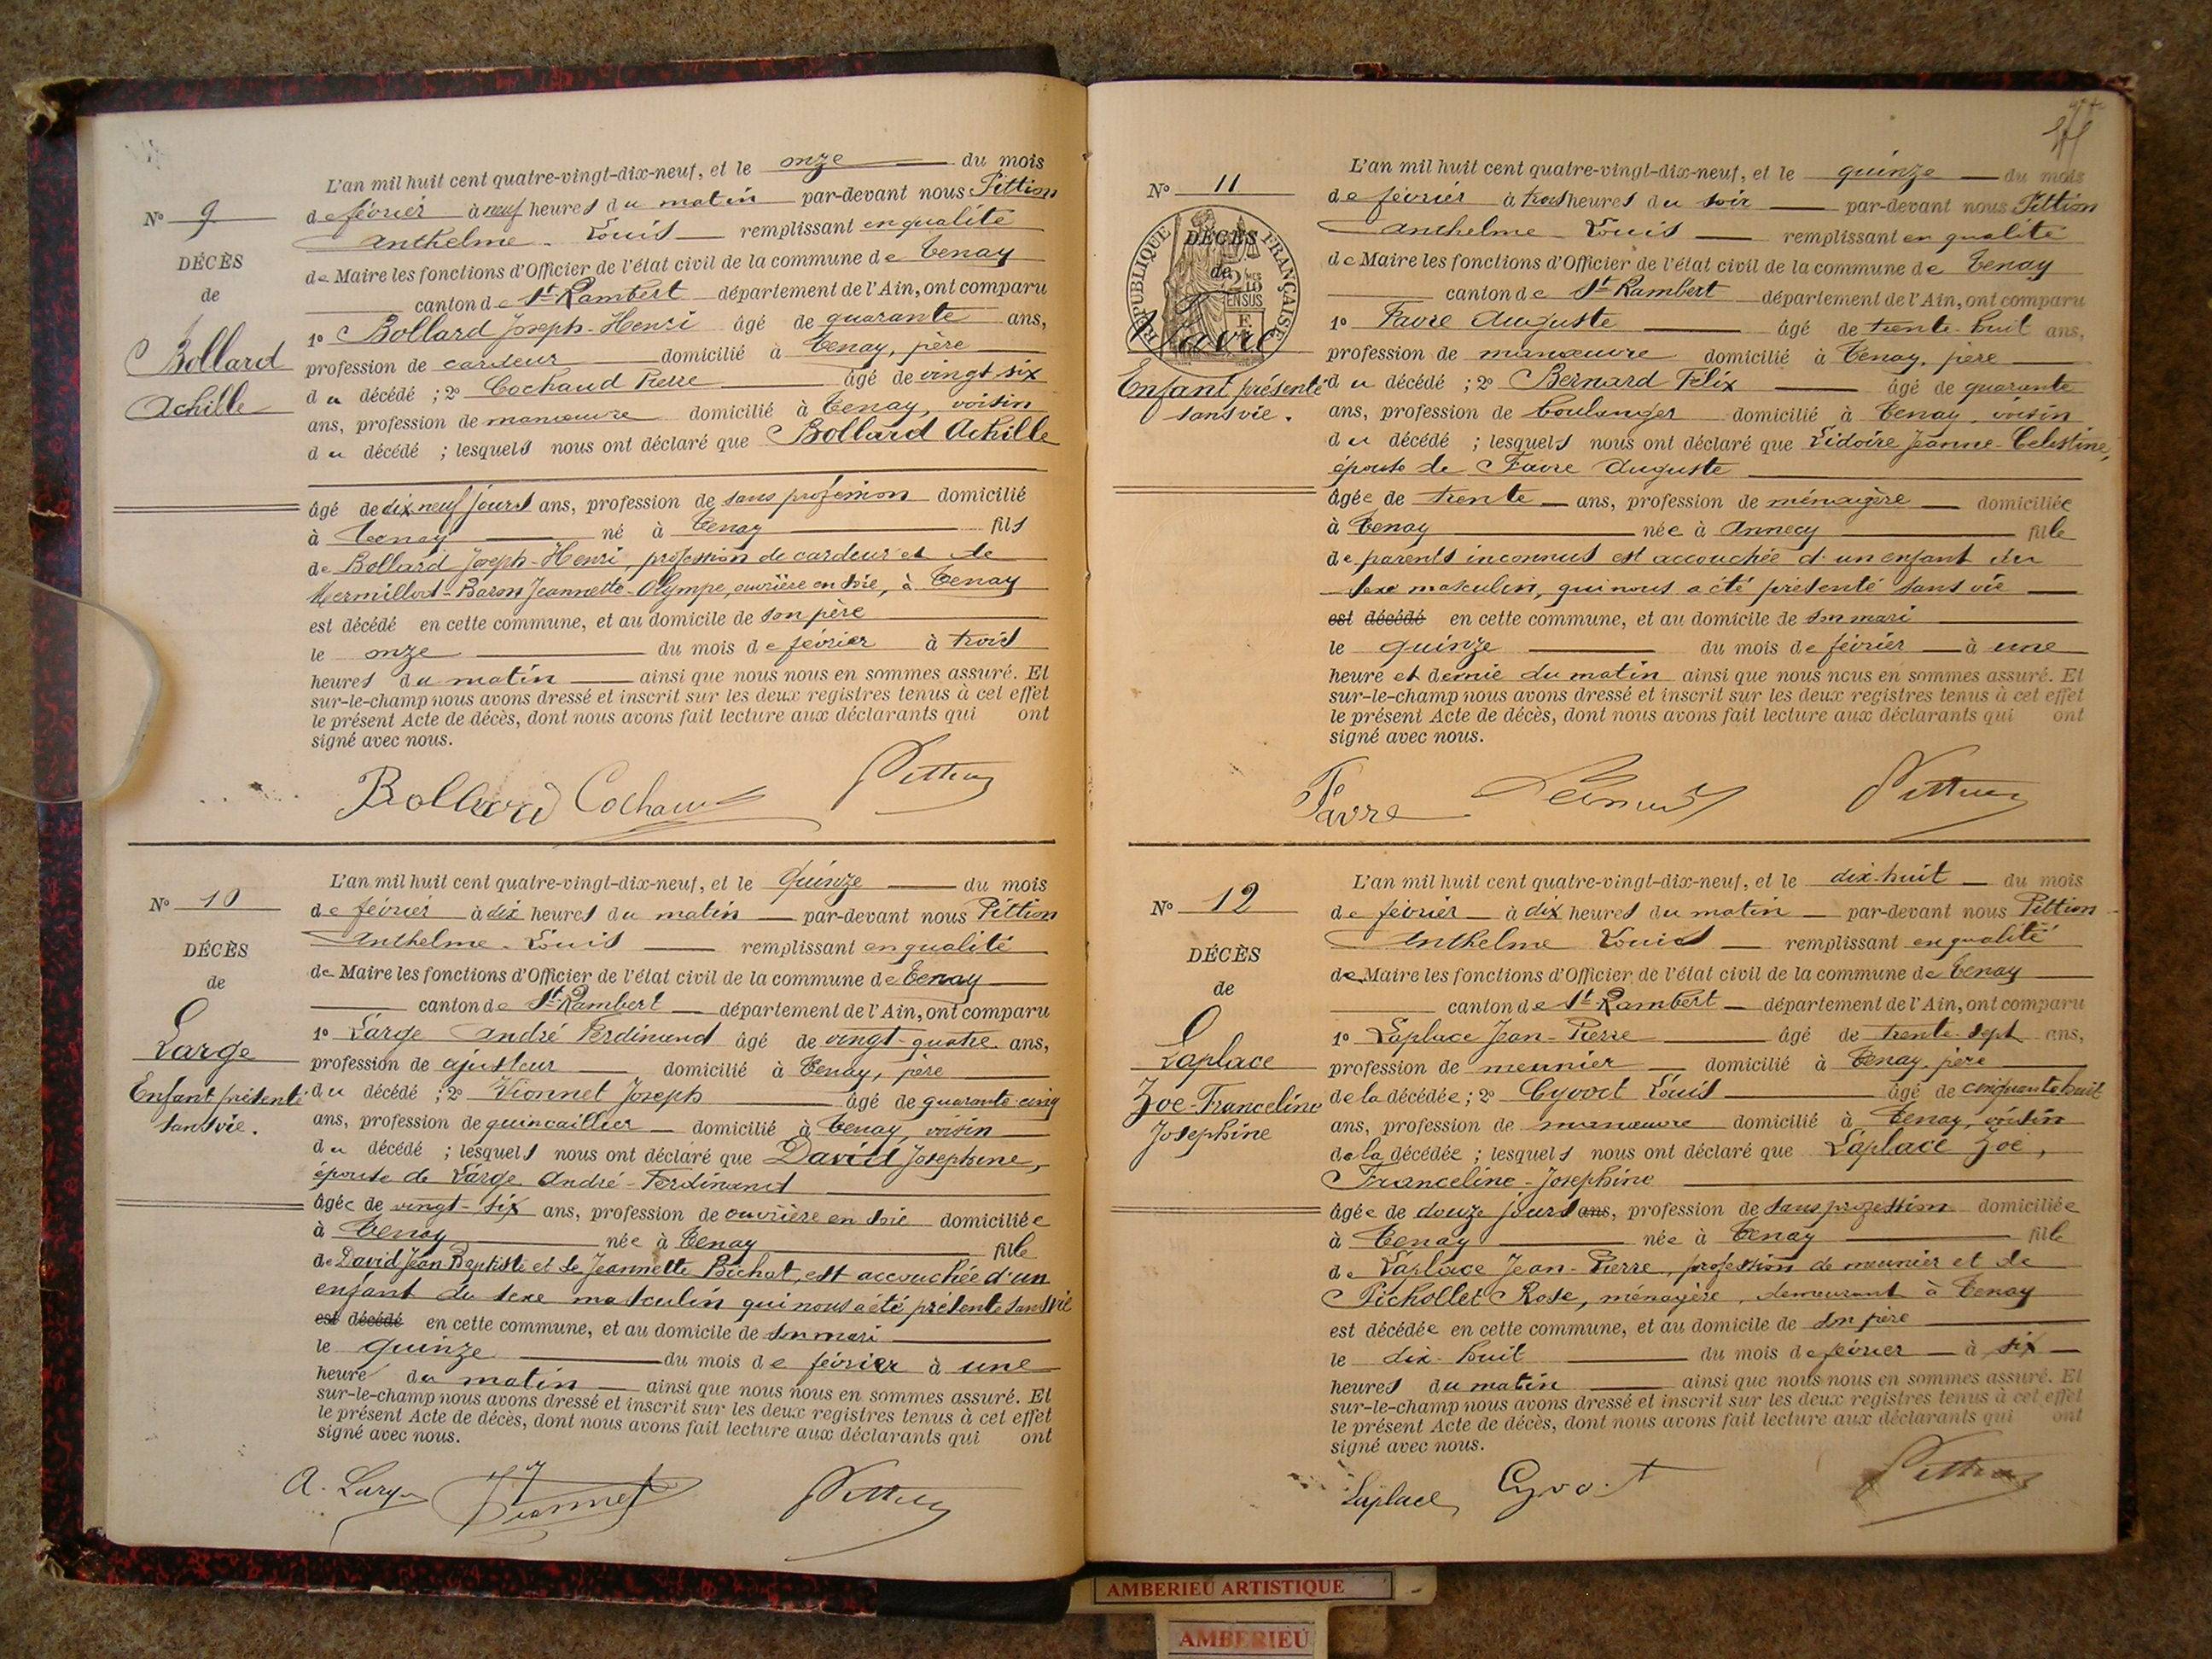 N° 9
DÉCÈS
de
Bollard
Achille
L'an mil huit cent quatre-vingt-dix-neuf, et le onze du mois
de février à neuf heures du matin par-devant nous Pittion
Anthelme Louis remplissant en qualité
de Maire les fonctions d'Officier de l'état civil de la commune de Tenay
canton de St Rambert département de l'Ain, ont comparu
1° Bollard Joseph-Henri âgé de quarante ans,
profession de cardeur domicilié à Tenay, père
du décédé ; 2° Cochaud Pierre âgé de vingt six
ans, profession de manœuvre domicilié à Tenay, voisin
du décédé ; lesquels nous ont déclaré que Bollard Achille
âgé de dix neuf jours ans, profession de sans profession domicilié
à Tenay né à Tenay fils
de Bollard Joseph-Henri, profession de cardeur et de
Mermillod-Baron Jeannette-Olympe, ouvrière en soie, à Tenay
est décédé en cette commune, et au domicile de son père
le onze du mois de février à trois
heures du matin ainsi que nous nous en sommes assuré. Et
sur-le-champ nous avons dressé et inscrit sur les deux registres tenus à cet effet
le présent Acte de décès, dont nous avons fait lecture aux déclarants qui ont
signé avec nous.
Bollard Cochaud Pittion
N° 10
DÉCÈS
de
Large
Enfant présenté
sans vie.
L'an mil huit cent quatre-vingt-dix-neuf, et le quinze du mois
de février à dix heures du matin par-devant nous Pittion
Anthelme-Louis remplissant en qualité
de Maire les fonctions d'Officier de l'état civil de la commune de Tenay
canton de St Rambert département de l'Ain, ont comparu
1° Large André Ferdinand âgé de vingt-quatre ans,
profession de ajusteur domicilié à Tenay, père
du décédé ; 2° Vionnet Joseph âgé de quarante-cinq
ans, profession de quincaillier domicilié à Tenay, voisin
du décédé ; lesquels nous ont déclaré que David Josephine,
épouse de Large André-Ferdinand
âgée de vingt-six ans, profession de ouvrière en soie domiciliée
à Tenay née à Tenay fille
de David Jean Baptiste et de Jeannette Bichat, est accouchée d'un
enfant du sexe masculin qui nous a été présenté sans vie
est décédé en cette commune, et au domicile de son mari
le quinze du mois de février à une
heure du matin ainsi que nous nous en sommes assuré. Et
sur-le-champ nous avons dressé et inscrit sur les deux registres tenus à cet effet
le présent Acte de décès, dont nous avons fait lecture aux déclarants qui ont
signé avec nous.
A. Large Vionnet Pittion
N° 11
RÉPUBLIQUE FRANÇAISE
DÉCÈS
de
Favre
Enfant présenté
sans vie.
L'an mil huit cent quatre-vingt-dix-neuf, et le quinze du mois
de février à trois heures du soir par-devant nous Pittion
Anthelme-Louis remplissant en qualité
de Maire les fonctions d'Officier de l'état civil de la commune de Tenay
canton de St Rambert département de l'Ain, ont comparu
1° Favre Auguste âgé de trente-huit ans,
profession de manœuvre domicilié à Tenay, père
du décédé ; 2° Bernard Félix âgé de quarante
ans, profession de boulanger domicilié à Tenay, voisin
du décédé ; lesquels nous ont déclaré que Lidoire Jeanne-Celestine,
épouse de Favre Auguste
âgée de trente ans, profession de ménagère domiciliée
à Tenay née à Annecy fille
de parents inconnus est accouchée d'un enfant du
sexe masculin, qui nous a été présenté sans vie
est décédé en cette commune, et au domicile de son mari
le quinze du mois de février à une
heure et demie du matin ainsi que nous nous en sommes assuré. Et
sur-le-champ nous avons dressé et inscrit sur les deux registres tenus à cet effet
le présent Acte de décès, dont nous avons fait lecture aux déclarants qui ont
signé avec nous.
Favre Bernard Pittion
N° 12
DÉCÈS
de
Laplace
Zoé-Franceline
Josephine
L'an mil huit cent quatre-vingt-dix-neuf, et le dix-huit du mois
de février à dix heures du matin par-devant nous Pittion
Anthelme Louis remplissant en qualité
de Maire les fonctions d'Officier de l'état civil de la commune de Tenay
canton de St Rambert département de l'Ain, ont comparu
1° Laplace Jean-Pierre âgé de trente-sept ans,
profession de meunier domicilié à Tenay, père
de la décédée ; 2° Cyvoct Louis âgé de cinquante huit
ans, profession de manœuvre domicilié à Tenay, voisin
de la décédée ; lesquels nous ont déclaré que Laplace Zoé,
Franceline-Josephine
âgée de douze jours ans, profession de sans profession domiciliée
à Tenay née à Tenay fille
de Laplace Jean-Pierre, profession de meunier et de
Pichollet Rose, ménagère, demeurant à Tenay
est décédée en cette commune, et au domicile de son père
le dix-huit du mois de février à six
heures du matin ainsi que nous nous en sommes assuré. Et
sur-le-champ nous avons dressé et inscrit sur les deux registres tenus à cet effet
le présent Acte de décès, dont nous avons fait lecture aux déclarants qui ont
signé avec nous.
Laplace Cyvoct Pittion
AMBERIEU ARTISTIQUE
AMBERIEU